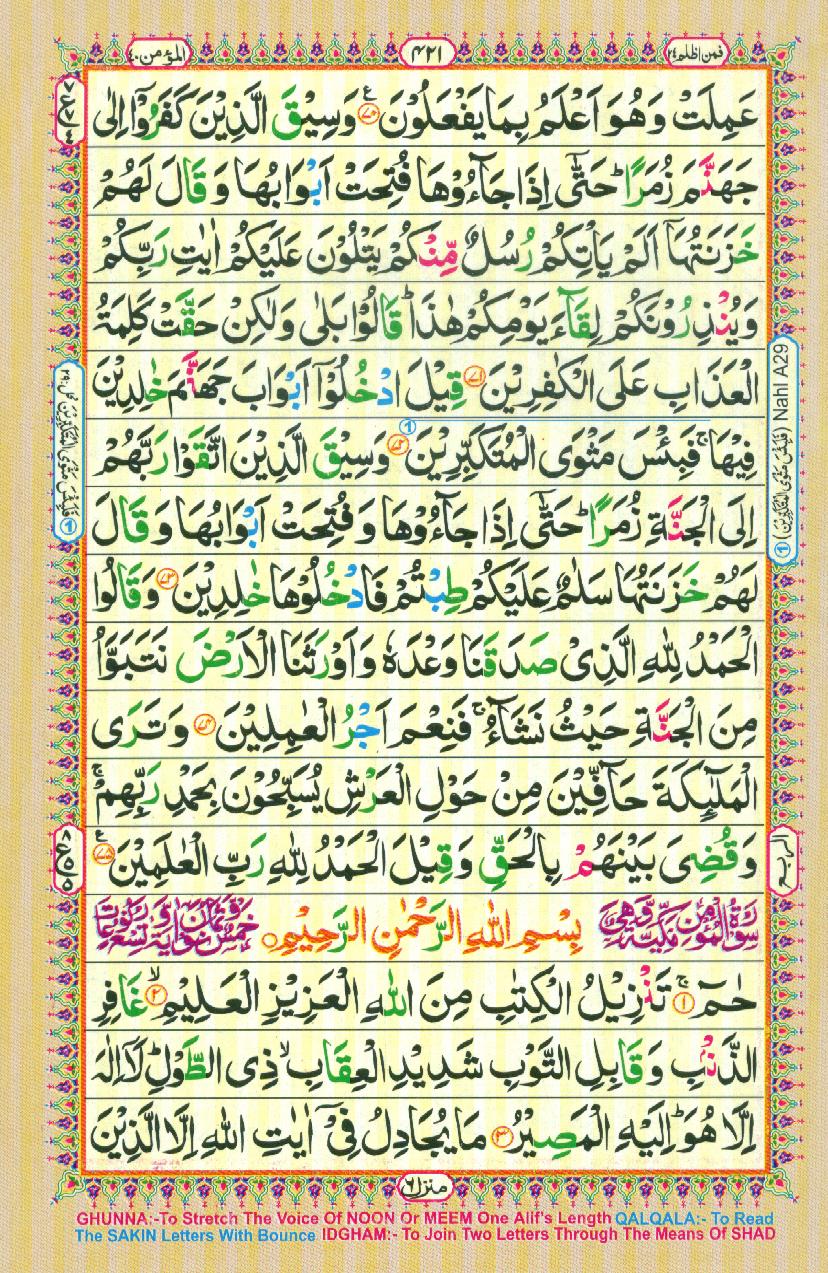 المؤمن ٤٠
٤٢١
فمن اظلم ٢٤
عَمِلَتْ وَهُوَ اَعْلَمُ بِمَا يَفْعَلُوْنَ ۧ﴿۷۰﴾ وَسِيْقَ الَّذِيْنَ كَفَرُوْۤا اِلٰى
جَهَنَّمَ زُمَرًا ؕ حَتّٰۤى اِذَا جَآءُوْهَا فُتِحَتْ اَبْوَابُهَا وَقَالَ لَهُمْ
خَزَنَتُهَاۤ اَلَمْ يَاْتِكُمْ رُسُلٌ مِّنْكُمْ يَتْلُوْنَ عَلَيْكُمْ اٰيٰتِ رَبِّكُمْ
وَيُنْذِرُوْنَكُمْ لِقَآءَ يَوْمِكُمْ هٰذَا ؕ قَالُوْا بَلٰى وَلٰكِنْ حَقَّتْ كَلِمَةُ
الْعَذَابِ عَلَى الْكٰفِرِيْنَ ﴿۷۱﴾ قِيْلَ ادْخُلُوْۤا اَبْوَابَ جَهَنَّمَ خٰلِدِيْنَ
فِيْهَا ۚ فَبِئْسَ مَثْوَى الْمُتَكَبِّرِيْنَ ﴿۷۲﴾ وَسِيْقَ الَّذِيْنَ اتَّقَوْا رَبَّهُمْ
اِلَى الْجَنَّةِ زُمَرًا ؕ حَتّٰۤى اِذَا جَآءُوْهَا وَفُتِحَتْ اَبْوَابُهَا وَقَالَ
لَهُمْ خَزَنَتُهَا سَلٰمٌ عَلَيْكُمْ طِبْتُمْ فَادْخُلُوْهَا خٰلِدِيْنَ ﴿۷۳﴾ وَقَالُوا
الْحَمْدُ لِلّٰهِ الَّذِىْ صَدَقَنَا وَعْدَهٗ وَاَوْرَثَنَا الْاَرْضَ نَتَبَوَّاُ
مِنَ الْجَنَّةِ حَيْثُ نَشَآءُ ۚ فَنِعْمَ اَجْرُ الْعٰمِلِيْنَ ﴿۷۴﴾ وَتَرَى
الْمَلٰٓئِكَةَ حَآفِّيْنَ مِنْ حَوْلِ الْعَرْشِ يُسَبِّحُوْنَ بِحَمْدِ رَبِّهِمْ ۚ
وَقُضِىَ بَيْنَهُمْ بِالْحَقِّ وَقِيْلَ الْحَمْدُ لِلّٰهِ رَبِّ الْعٰلَمِيْنَ ۧ﴿۷۵﴾
بِسْمِ اللهِ الرَّحْمٰنِ الرَّحِيْمِ
حٰمٓ ۚ﴿۱﴾ تَنْزِيْلُ الْكِتٰبِ مِنَ اللهِ الْعَزِيْزِ الْعَلِيْمِ ۙ﴿۲﴾ غَافِرِ
الذَّنْۢبِ وَقَابِلِ التَّوْبِ شَدِيْدِ الْعِقَابِ ۙ ذِى الطَّوْلِ ؕ لَاۤ اِلٰهَ
اِلَّا هُوَ ؕ اِلَيْهِ الْمَصِيْرُ ﴿۳﴾ مَا يُجَادِلُ فِىْۤ اٰيٰتِ اللهِ اِلَّا الَّذِيْنَ
Nahl A29
منزل ٦
GHUNNA:-To Stretch The Voice Of NOON Or MEEM One Alif's Length QALQALA:- To Read
The SAKIN Letters With Bounce IDGHAM:- To Join Two Letters Through The Means Of SHAD